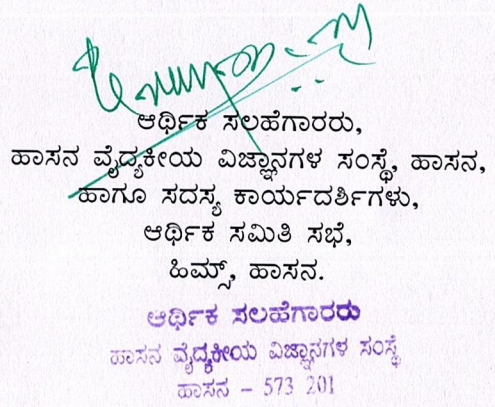 ಆರ್ಥಿಕ ಸಲಹೆಗಾರರು,
ಹಾಸನ ವೈದ್ಯಕೀಯ ವಿಜ್ಞಾನಗಳ ಸಂಸ್ಥೆ, ಹಾಸನ,
ಹಾಗೂ ಸದಸ್ಯ ಕಾರ್ಯದರ್ಶಿಗಳು,
ಆರ್ಥಿಕ ಸಮಿತಿ ಸಭೆ,
ಹಿಮ್ಸ್, ಹಾಸನ.
ಆರ್ಥಿಕ ಸಲಹೆಗಾರರು
ಹಾಸನ ವೈದ್ಯಕೀಯ ವಿಜ್ಞಾನಗಳ ಸಂಸ್ಥೆ
ಹಾಸನ - 573 201